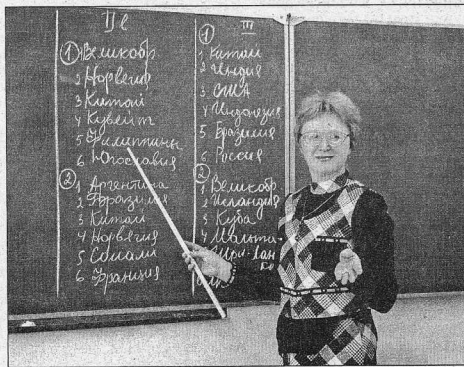 II в
① 1 Великобр
2 Норвегия
3 Китай
4 Кувейт
5 Филиппины
6 Югославия
② 1 Аргентина
2 Бразилия
3 Китай
4 Норвегия
5 Сомали
6 Франция
III
①
1 Китай
2 Индия
3 США
4 Индонезия
5 Бразилия
6 Россия
②
1 Великобр
2 Исландия
3 Куба
4 Мальта
Шри-Лан